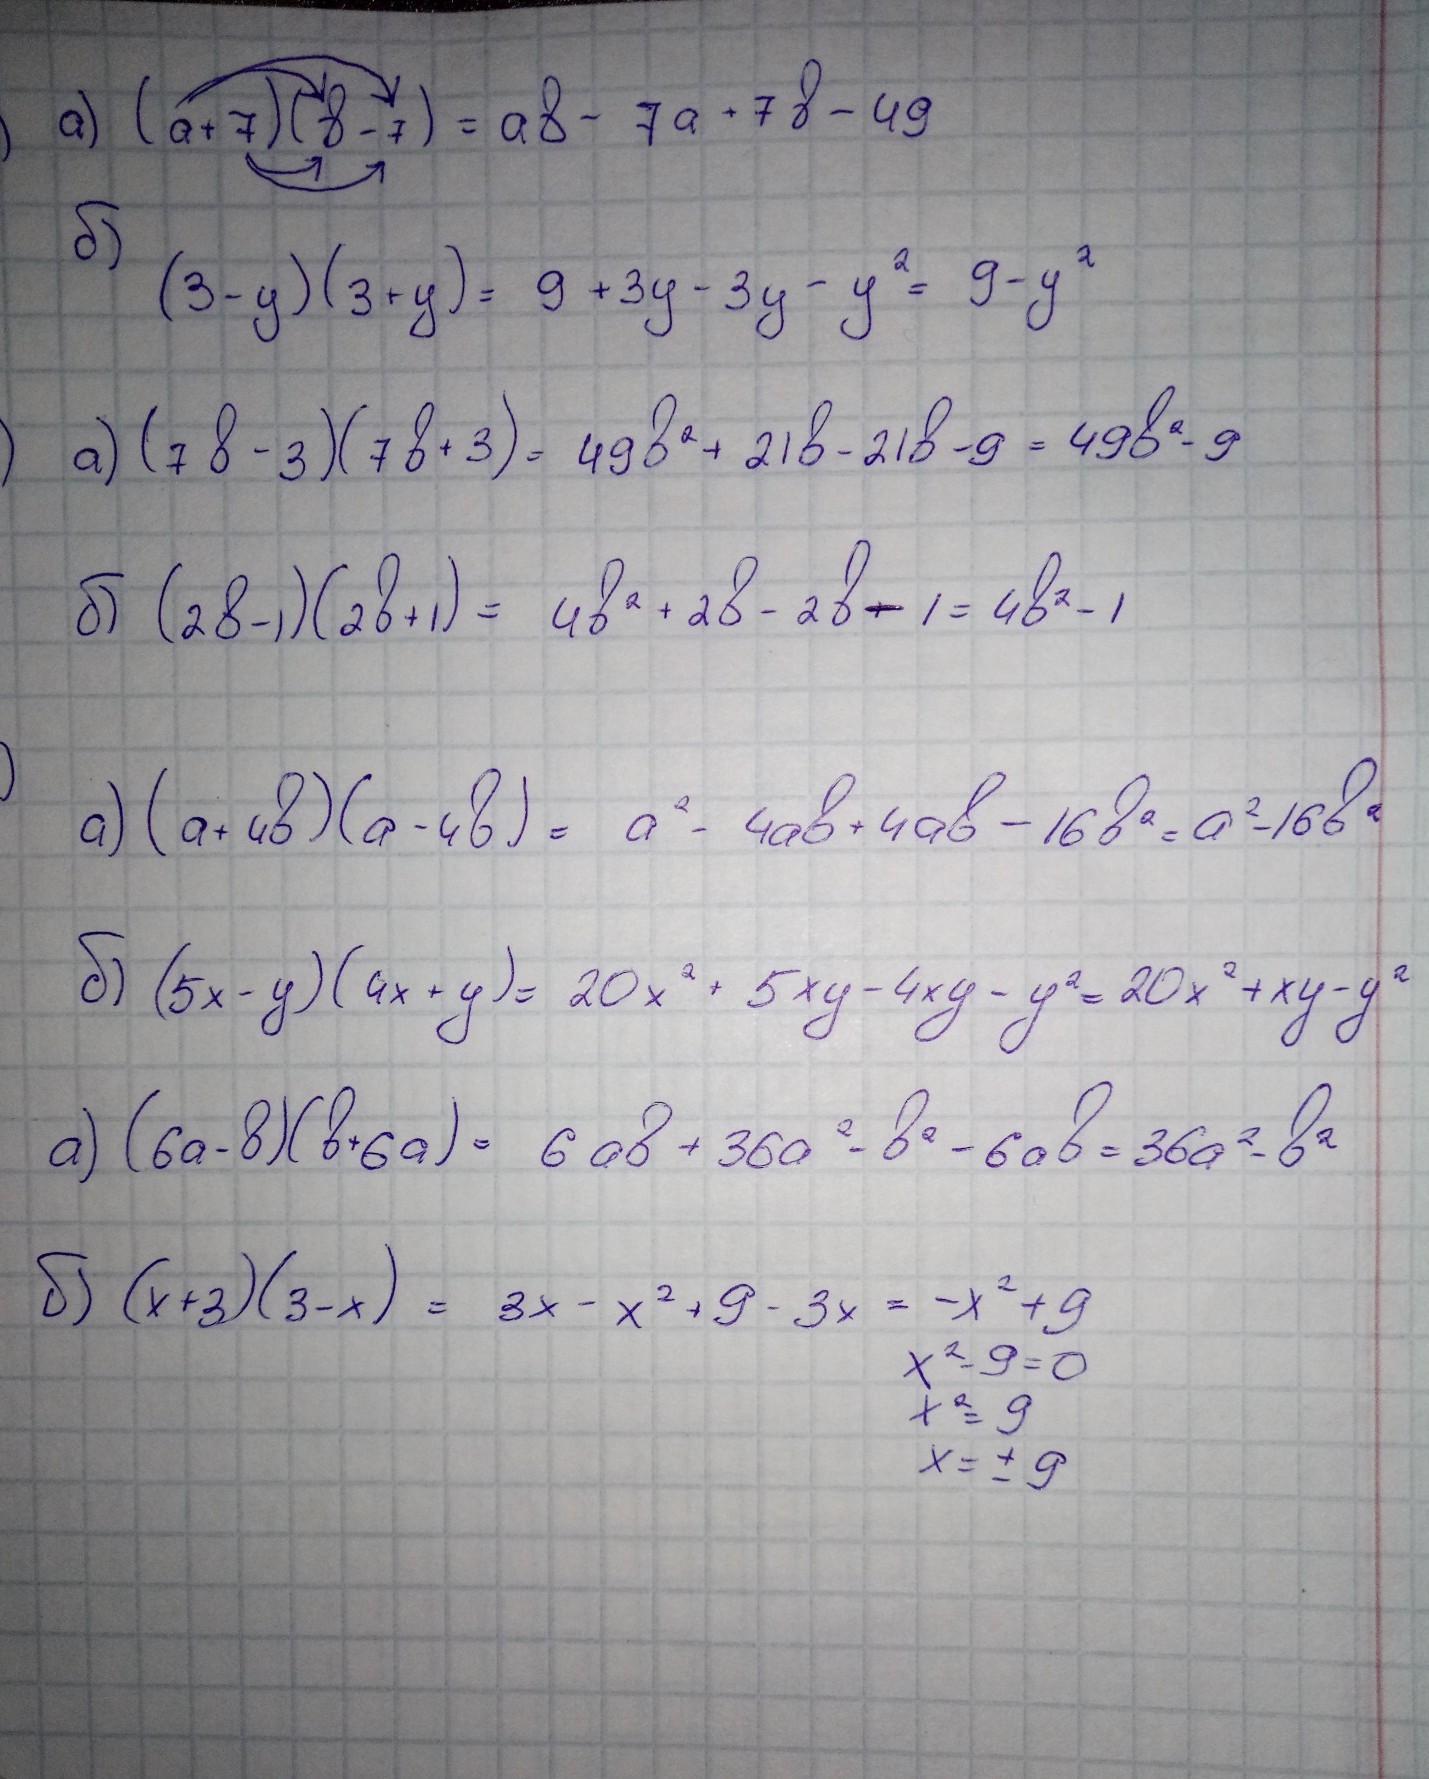 ) а) (a+7)(b-7) = ab - 7a + 7b - 49
б)
(3-y)(3+y) = 9 + 3y - 3y - y² = 9 - y²
) а) (7b-3)(7b+3) = 49b² + 21b - 21b - 9 = 49b² - 9
б) (2b-1)(2b+1) = 4b² + 2b - 2b - 1 = 4b² - 1
)
а) (a+4b)(a-4b) = a² - 4ab + 4ab - 16b² = a² - 16b²
б) (5x-y)(4x+y) = 20x² + 5xy - 4xy - y² = 20x² + xy - y²
а) (6a-b)(b+6a) = 6ab + 36a² - b² - 6ab = 36a² - b²
б) (x+3)(3-x) = 3x - x² + 9 - 3x = -x² + 9
x² - 9 = 0
x² = 9
x = ± 9